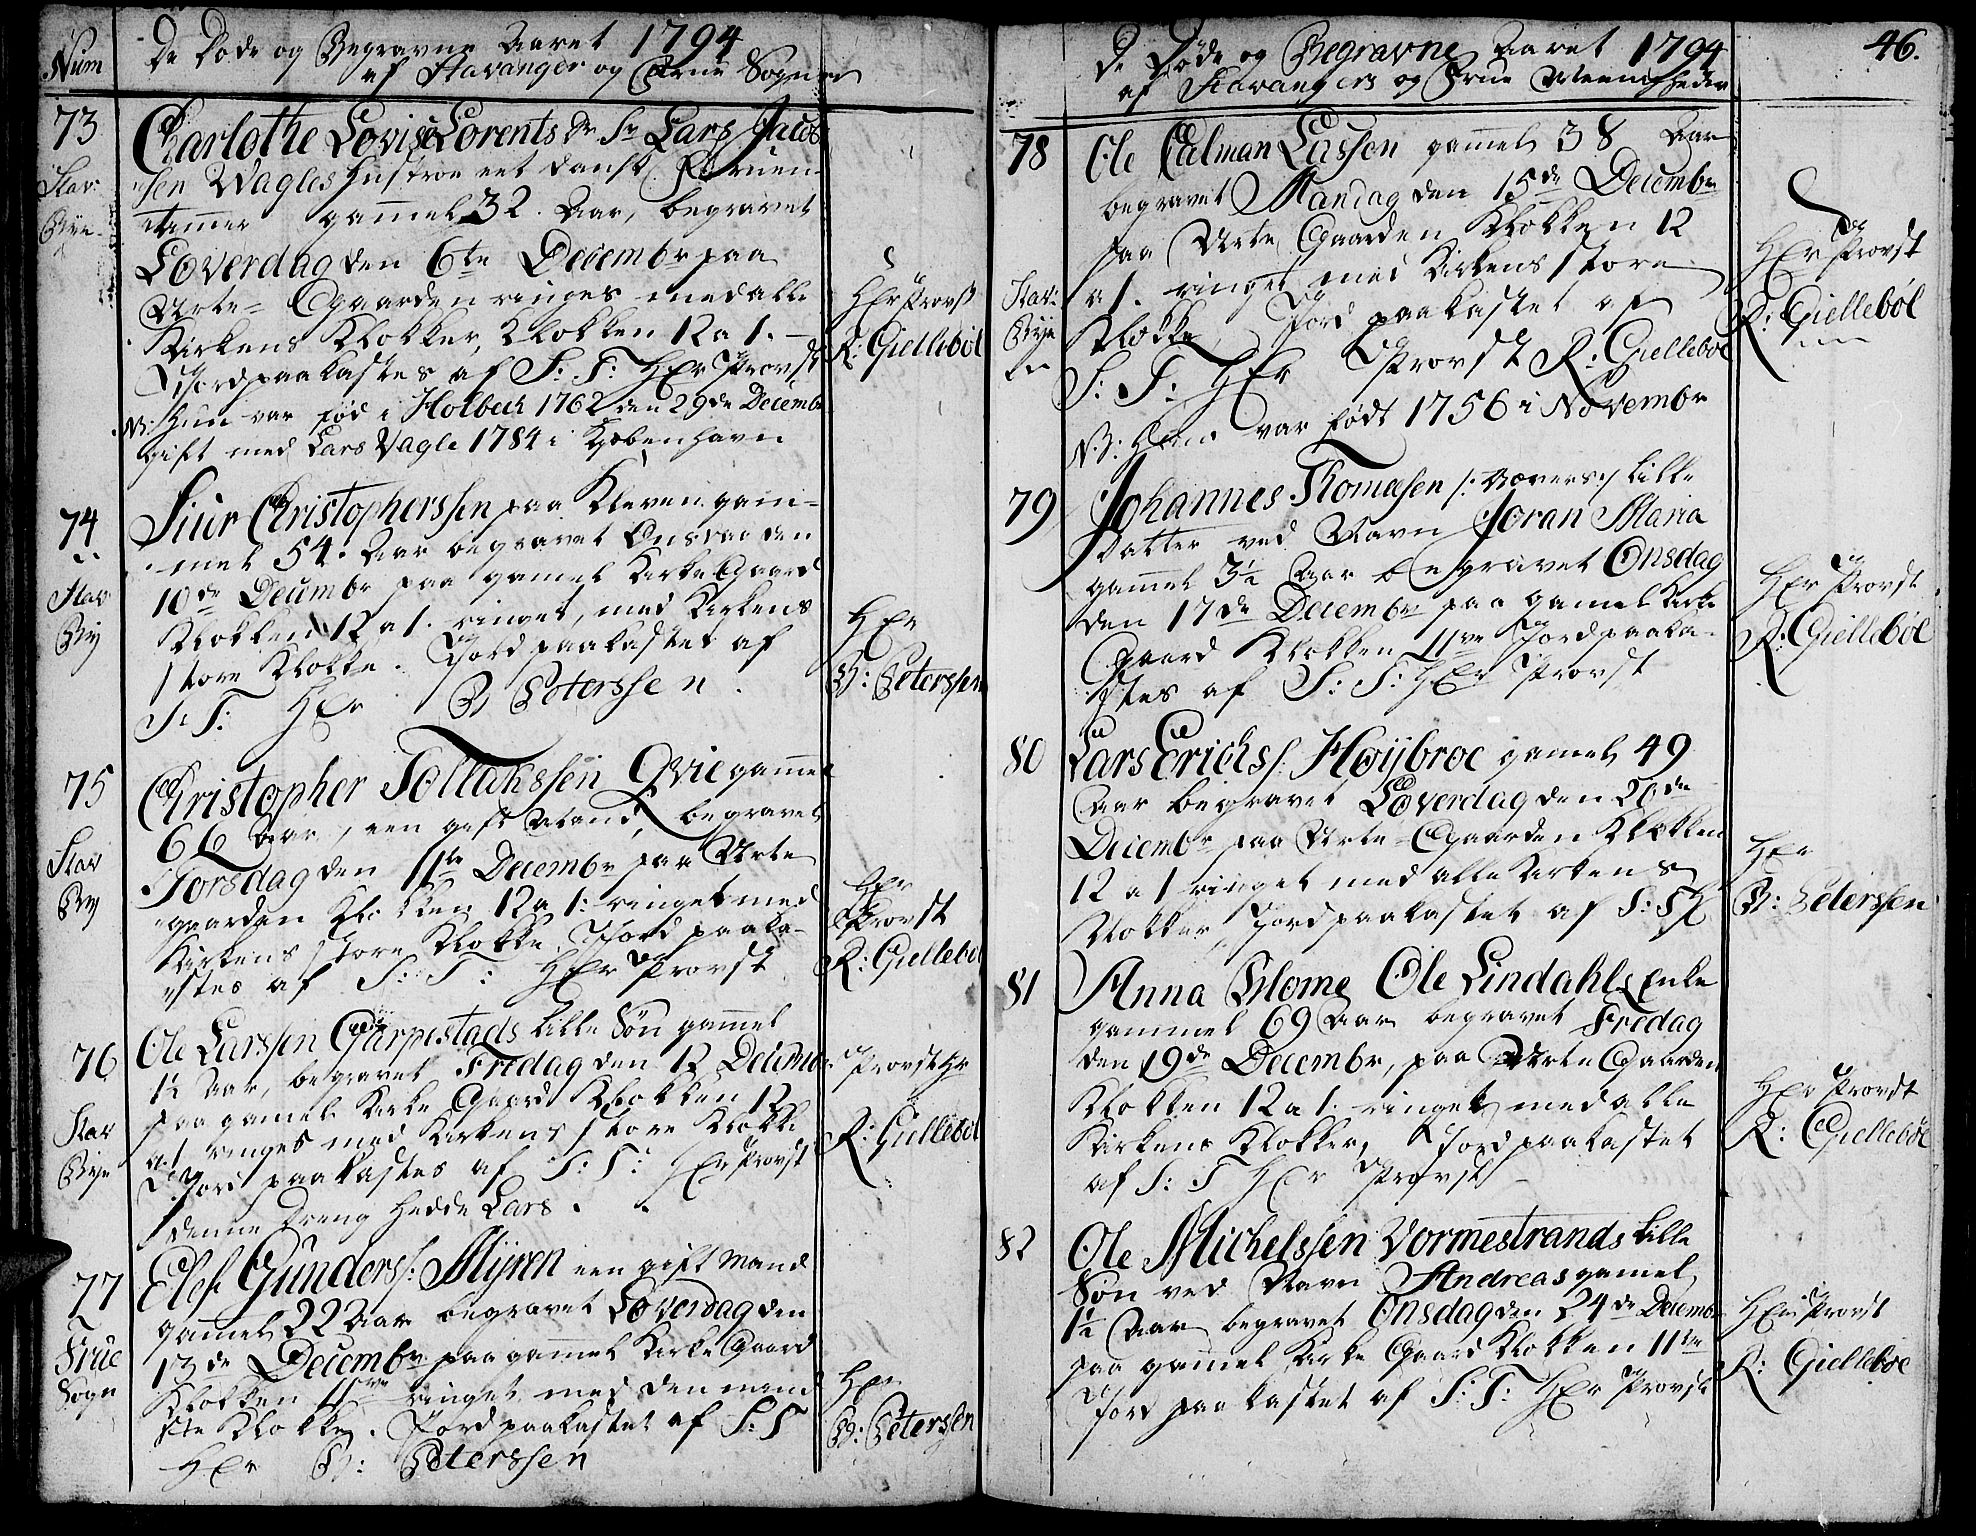 Num
De Døde og Begravne Aaret 1794
af Stavanger og Frue Sogner
73
Stav:
Bye
Charlothe Lovise Lorents Dr Sr Lars Jacob
sen Wagles Hustroe eet dansk Fruen
timer gamel 32. Aar, begravet
Loverdag den 6te Decembr paa
Urte-Gaarden ringes med alle
Kirkens Klokker, Klokken 12 a 1.
Jord paakastes af S: T: HEr Provst
NB: Hun var fød i Holbech 1762 den 29de Decembr
gift med Lars Vagle 1784 i Kjøbenhavn
HEr Provst
R: Giellebøl
74
Stav
By
Siur Christopherssen paa Kleven gam-
mel 54. Aar begravet Onsdag den
10de Decembr paa gamel Kirke Gaard
Klokken 12 a 1. ringet, med Kirkens
store Klokke. Jord paakastet af
S: T: HEr B Peterssen.
HEr
B: Peterssen
75
Stav
By
Christopher Tollakssen Qvie gammel
66 Aar, een gift Mand, begravet
Torsdag den 11te Decembr paa Urte
gaarden Klokken 12 a 1: ringet med
Kirkens store Klokke. Jord paaka-
stes af S: T: HEr Provst
HEr
Provst
R: Giellebøl
76
Stav
Bye
Ole Larssen Garpestads lille Søn gamel
1½ Aar, begravet Fredag den 12 Decembr
paa gamel Kirke Gaard Klokken 12
a 1 ringes med Kirkens store Klokke
Jord paakastes af S: T: HEr Provst
denne Dreng hedde Lars.
Provst Hr
R: Giellebøl
77
Frue
Sogn
Elef Gunders: Myren een gift Mand
gamel 22 Aar begravet Loverdag den
13de Decembr paa gamel Kirke Gaard
Klokken 11ve ringet med den mind
ste Klokke. Jord paakastet af S: T
HEr B: Peterssen
HEr
B: Peterssen
De Døde og Begravne Aaret 1794
af Stavangers og Frue Meenigheder
46.
78
Stav:
Bye
Ole Calman Lassen gamel 38 Aar
begravet Mandag den 15de Decembr
paa Urte Gaarden Klokken 12
a 1. ringet med Kirkens store
Klokke, Jord paakastet af
S: T: HEr Provst R: Giellebøl
NB: Han var født 1756 i Novembr
HEr Provst
R: Giellebøl
79
Johannes Thomasen /: Wævers :/ lille
Datter ved Navn Joran Maria
gamel 3½ Aar begravet Onsdag
den 17de Decembr paa gamel Kirke
Gaard Klokken 11ve Jord paaka-
stes af S: T: HEr Provst
HEr Provst
R: Giellebøl
80
Lars Erichs: Høijbroe gamel 49
Aar begravet Loverdag den 20de
Decembr paa Urte-Gaarden Klokken
12 a 1 ringet med alle Kirkens
Klokker, Jord paakastet af S: T H
HEr
B: Peterssen
81
Anna Blome Ole Lindahls Enke
gammel 69 Aar begravet Fredag
den 19de Decembr, paa Urte Gaarden
Klokken 12 a 1. ringet med alle
Kirkens Klokker, Jord paakastet
af S: T HEr Provst
HEr Provst
R: Giellebøl
82
Ole Michelssen Vormestrands lille
Søn ved Navn Andreas gamel
1½ Aar begravet Onsdag den 24de Decembr
paa gamel Kirke Gaard Klokken 11ve
Jord paakastet af S: T: HEr Provst
HEr Provst
R: Giellebøl